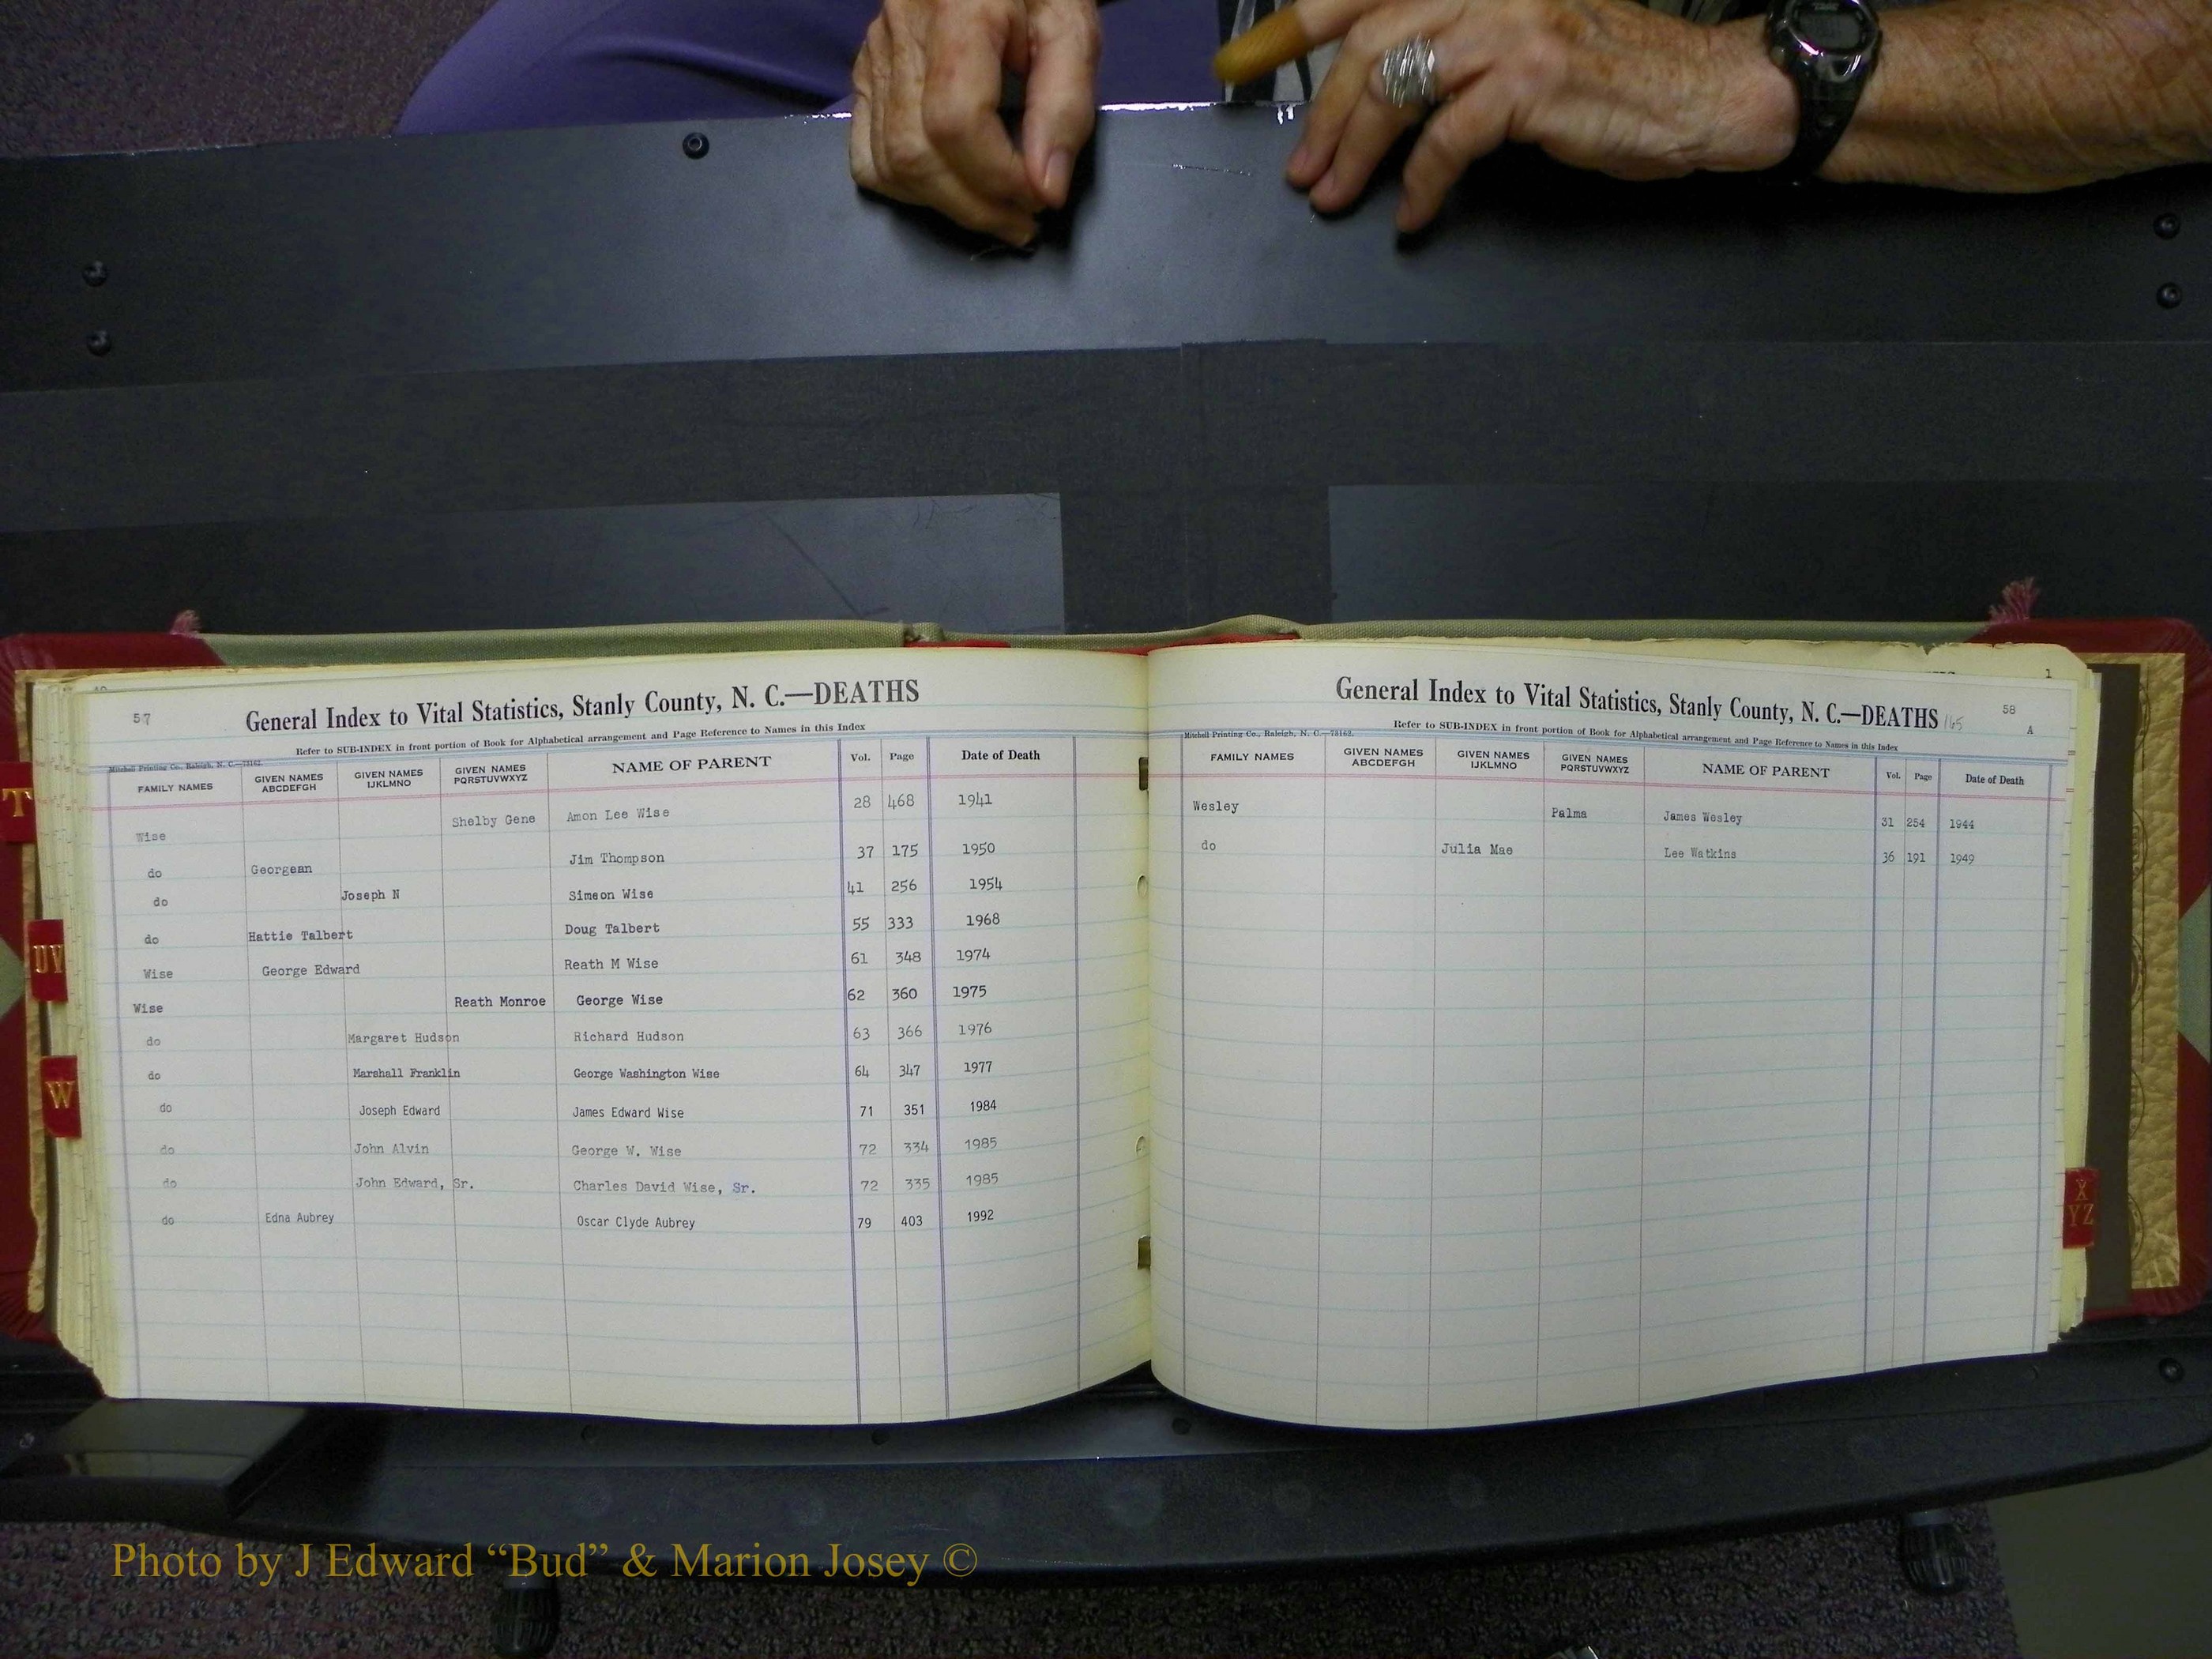 57
General Index to Vital Statistics, Stanly County, N. C.—DEATHS
Refer to SUB-INDEX in front portion of Book for Alphabetical arrangement and Page Reference to Names in this Index
Mitchell Printing Co., Raleigh, N. C.—73162.
FAMILY NAMES GIVEN NAMES ABCDEFGH GIVEN NAMES IJKLMNO GIVEN NAMES PQRSTUVWXYZ NAME OF PARENT Vol. Page Date of Death
Wise Shelby Gene Amon Lee Wise 28 468 1941
do Georgean Jim Thompson 37 175 1950
do Joseph N Simeon Wise 41 256 1954
do Hattie Talbert Doug Talbert 55 333 1968
Wise George Edward Reath M Wise 61 348 1974
Wise Reath Monroe George Wise 62 360 1975
do Margaret Hudson Richard Hudson 63 366 1976
do Marshall Franklin George Washington Wise 64 347 1977
do Joseph Edward James Edward Wise 71 351 1984
do John Alvin George W. Wise 72 334 1985
do John Edward, Sr. Charles David Wise, Sr. 72 335 1985
do Edna Aubrey Oscar Clyde Aubrey 79 403 1992
T
UV
W
1
58
General Index to Vital Statistics, Stanly County, N. C.—DEATHS 165
A
Refer to SUB-INDEX in front portion of Book for Alphabetical arrangement and Page Reference to Names in this Index
Mitchell Printing Co., Raleigh, N. C.—73162.
FAMILY NAMES GIVEN NAMES ABCDEFGH GIVEN NAMES IJKLMNO GIVEN NAMES PQRSTUVWXYZ NAME OF PARENT Vol. Page Date of Death
Wesley Palma James Wesley 31 254 1944
do Julia Mae Lee Watkins 36 191 1949
X
YZ
Photo by J Edward “Bud” & Marion Josey ©